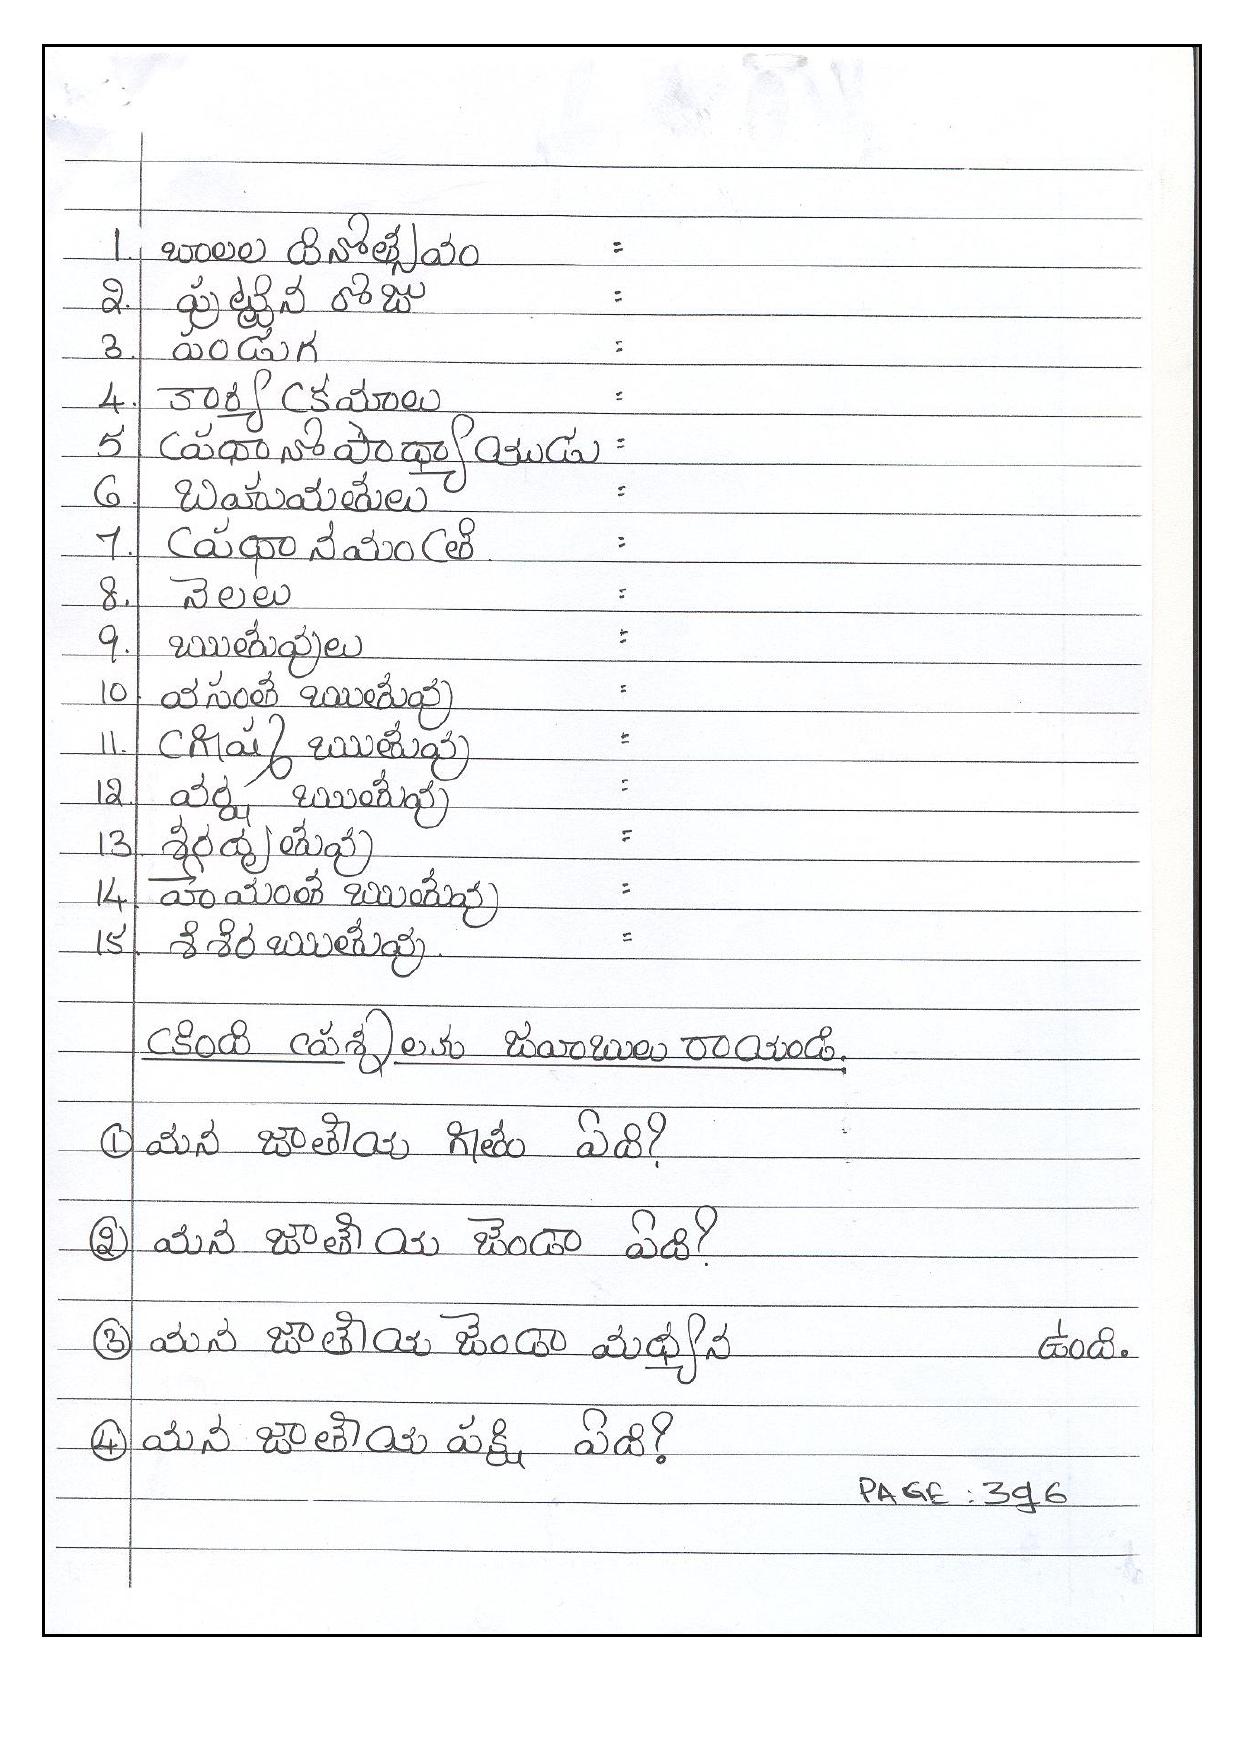 1. బాలల దినోత్సవం =
2. పుట్టిన రోజు =
3. పండుగ =
4. కార్యక్రమాలు =
5 ప్రధానోపాధ్యాయుడు =
6. బహుమతులు =
7. ప్రధానమంత్రి =
8. నెలలు =
9. ఋతువులు =
10. వసంత ఋతువు =
11. గ్రీష్మ ఋతువు =
12. వర్ష ఋతువు =
13. శరదృతువు =
14. హేమంత ఋతువు =
15. శిశిర ఋతువు. =
క్రింది ప్రశ్నలకు జవాబులు రాయండి.
① మన జాతీయ గీతం ఏది?
② మన జాతీయ జెండా ఏది?
③ మన జాతీయ జెండా మధ్యన ఉంది.
④ మన జాతీయ పక్షి ఏది?
PAGE : 3వ6